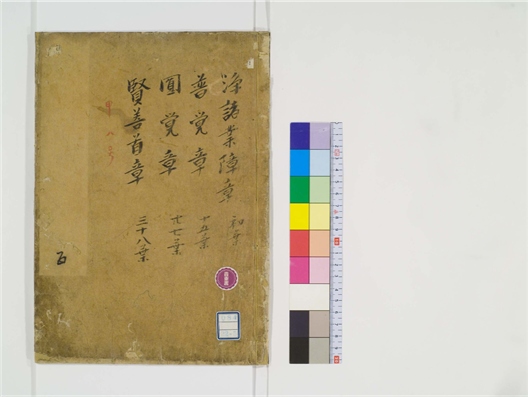 淨諸業障章 初葉
普覚章 十五葉
圓覚章 廿七葉
賢善首章 三十八葉